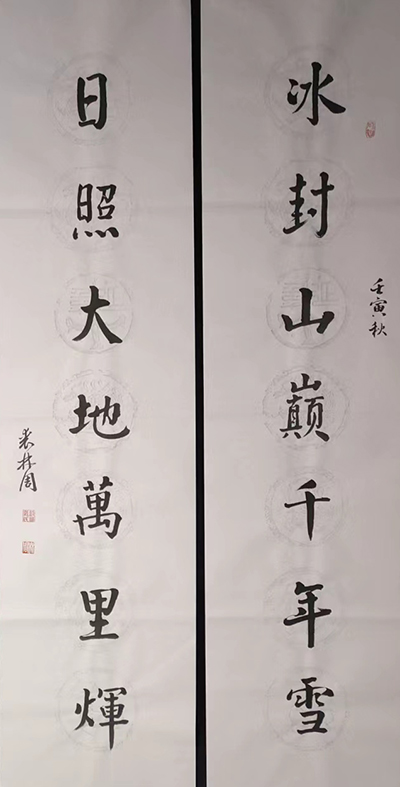 冰封山巔千年雪
壬寅秋
日照大地萬里煇
林周